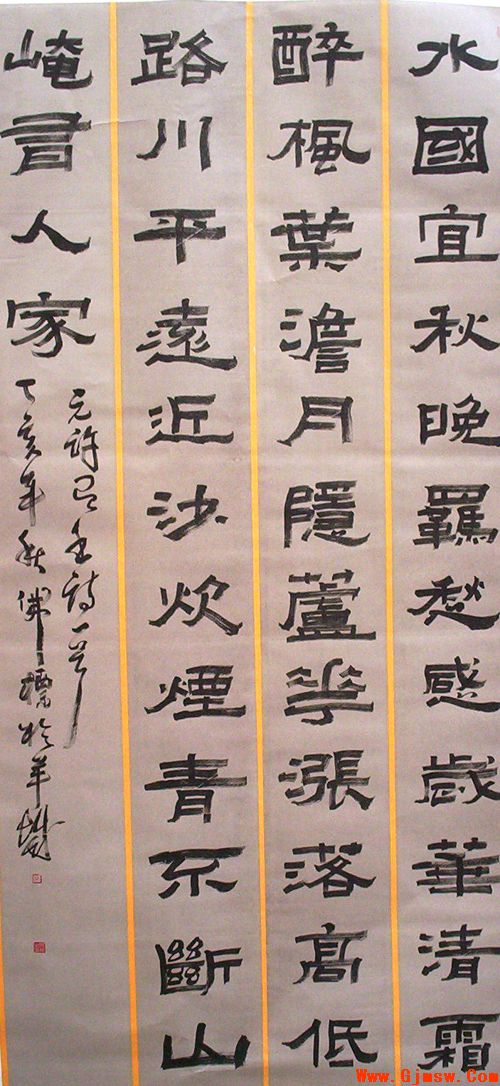 水國宜秋晚羈愁感歲華清霜
醉楓葉澹月隱蘆花漲落高低
路川平遠近沙炊煙青不斷山
崦有人家
元許有壬詩一首
丁亥年秋佛標於羊城
Www.Gjmsw.Com